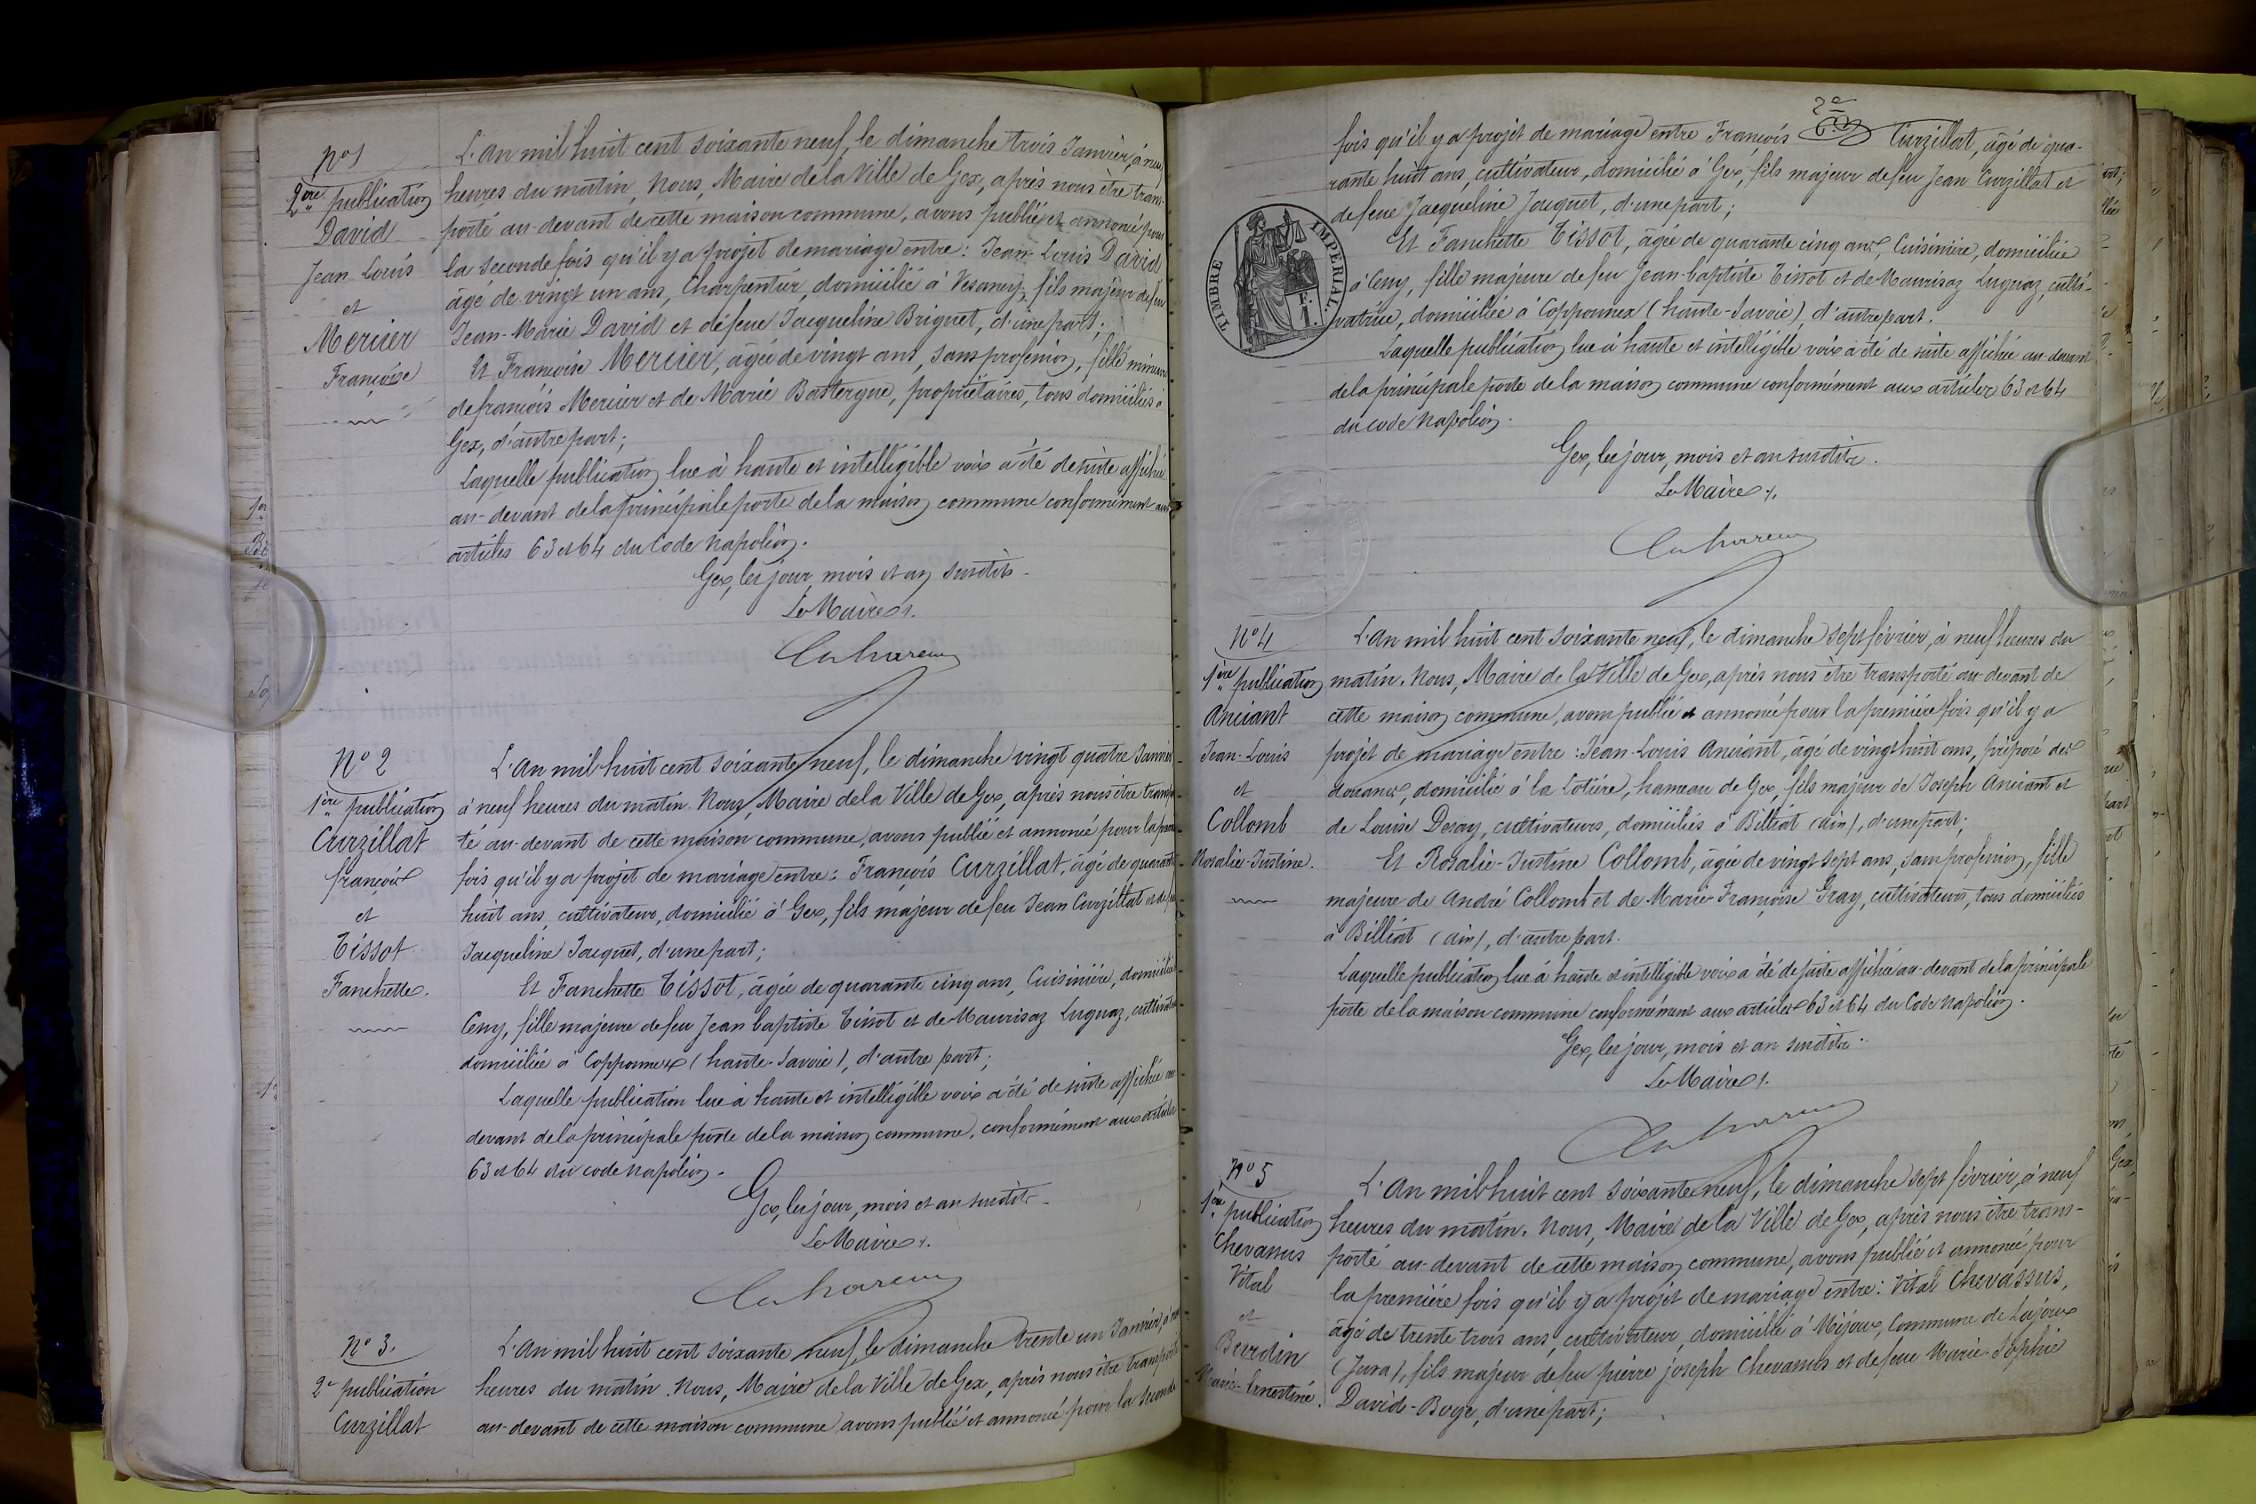 N° 1
2ère publication
David
Jean Louis
et
Mercier
Françoise
L'An mil huit cent soixante neuf, le dimanche trois Janvier, à neuf
heures du matin, Nous, Maire de la Ville de Gex, après nous être trans-
porté au-devant de cette maison commune, avons publié et annoncé pour
la seconde fois qu'il y a projet de mariage entre: Jean-Louis David
âgé de vingt un ans, Charpentier, domicilié à Vesancy, fils majeur de feu
Jean-Marie David et de feue Jacqueline Briquet, d'une part;
Et Françoise Mercier, âgée de vingt ans, sans profession, fille mineure
de françois Mercier et de Marie Bastergue, propriétaires, tous domiciliés à
Gex, d'autre part;
Laquelle publication lue à haute et intelligible voix a été de suite affichée
au-devant de la principale porte de la maison commune conformément aux
articles 63 et 64 du Code Napoléon.
Gex, les jour, mois et an susdits.
Le Maire
N° 2
1ère publication
Curzillat
françois
et
Tissot
Fanchette.
L'An mil huit cent soixante neuf, le dimanche vingt quatre Janvier
à neuf heures du matin. Nous, Maire de la Ville de Gex, après nous être transpor
té au-devant de cette maison commune, avons publié et annoncé pour la première
fois qu'il y a projet de mariage entre: François Curzillat, âgé de quarante
huit ans, cultivateur, domicilié à Gex, fils majeur de feu Jean Curzillat et de feue
Jacqueline Jacquet, d'une part;
Et Fanchette Tissot, âgée de quarante cinq ans, Cuisinière, domiciliée
Ceny, fille majeure de feu Jean baptiste Tissot et de Maurisaz Luguaz, cultivatrice
domiciliée à Copponnex (haute-Savoie), d'autre part;
Laquelle publication lue à haute et intelligible voix a été de suite affichée au
devant de la principale porte de la maison commune, conformément aux articles
63 et 64 du code Napoléon.
Gex, les jour, mois et an susdits.
Le Maire
N° 3.
2e publication
Curzillat
L'An mil huit cent soixante neuf, le dimanche trente un Janvier, à neuf
heures du matin. Nous, Maire de la Ville de Gex, après nous être transporté
au-devant de cette maison commune avons publié et annoncé pour la seconde
2e
fois qu'il y a projet de mariage entre François Curzillat, âgé de qua-
rante huit ans, cultivateur, domicilié à Gex, fils majeur de feu Jean Curzillat et
de feue Jacqueline Jacquet, d'une part;
Et Fanchette Tissot, âgée de quarante cinq ans, Cuisinière, domiciliée
à Ceny, fille majeure de feu Jean-baptiste Tissot et de Maurisaz Luguaz, culti-
vatrice, domiciliée à Copponnex (haute-Savoie), d'autre part.
Laquelle publication lue à haute et intelligible voix a été de suite affichée au-devant
de la principale porte de la maison commune conformément aux articles 63 et 64
du code Napoléon.
Gex, les jour, mois et an susdits.
Le Maire
TIMBRE IMPERIAL.
F.
1.
N° 4
1ère publication
Anciant
Jean-Louis
et
Collomb
Rosalie-Justine.
L'An mil huit cent soixante neuf, le dimanche sept février, à neuf heures du
matin. Nous, Maire de la Ville de Gex, après nous être transporté au-devant de
cette maison commune, avons publié et annoncé pour la première fois qu'il y a
projet de mariage entre: Jean-Louis Anciant, âgé de vingt huit ans, préposé des
douanes, domicilié à la Cotière, hameau de Gex, fils majeur de Joseph Anciant et
de Louise Deray, cultivateurs, domiciliés à Billiat (ain), d'une part;
Et Rosalie-Justine Collomb, âgée de vingt sept ans, sans profession, fille
majeure de André Collomb et de Marie Françoise Gray, cultivateurs, tous domiciliés
à Billiat (ain), d'autre part.
Laquelle publication lue à haute et intelligible voix a été de suite affichée au-devant de la principale
porte de la maison commune conformément aux articles 63 et 64 du Code Napoléon.
Gex, les jour, mois et an susdits.
Le Maire
N° 5
1ère publication
Chevassus
Vital
et
Burdin
Marie-Ernestine.
L'An mil huit cent soixante neuf, le dimanche sept février, à neuf
heures du matin. Nous, Maire de la Ville de Gex, après nous être trans-
porté au-devant de cette maison commune, avons publié et annoncé pour
la première fois qu'il y a projet de mariage entre: Vital Chevassus,
âgé de trente trois ans, cultivateur, domicilié à Mijoux, Commune de Lajoux
(Jura), fils majeur de feu pierre joseph Chevassus et de feue Marie-Sophie
David-Buge, d'une part;